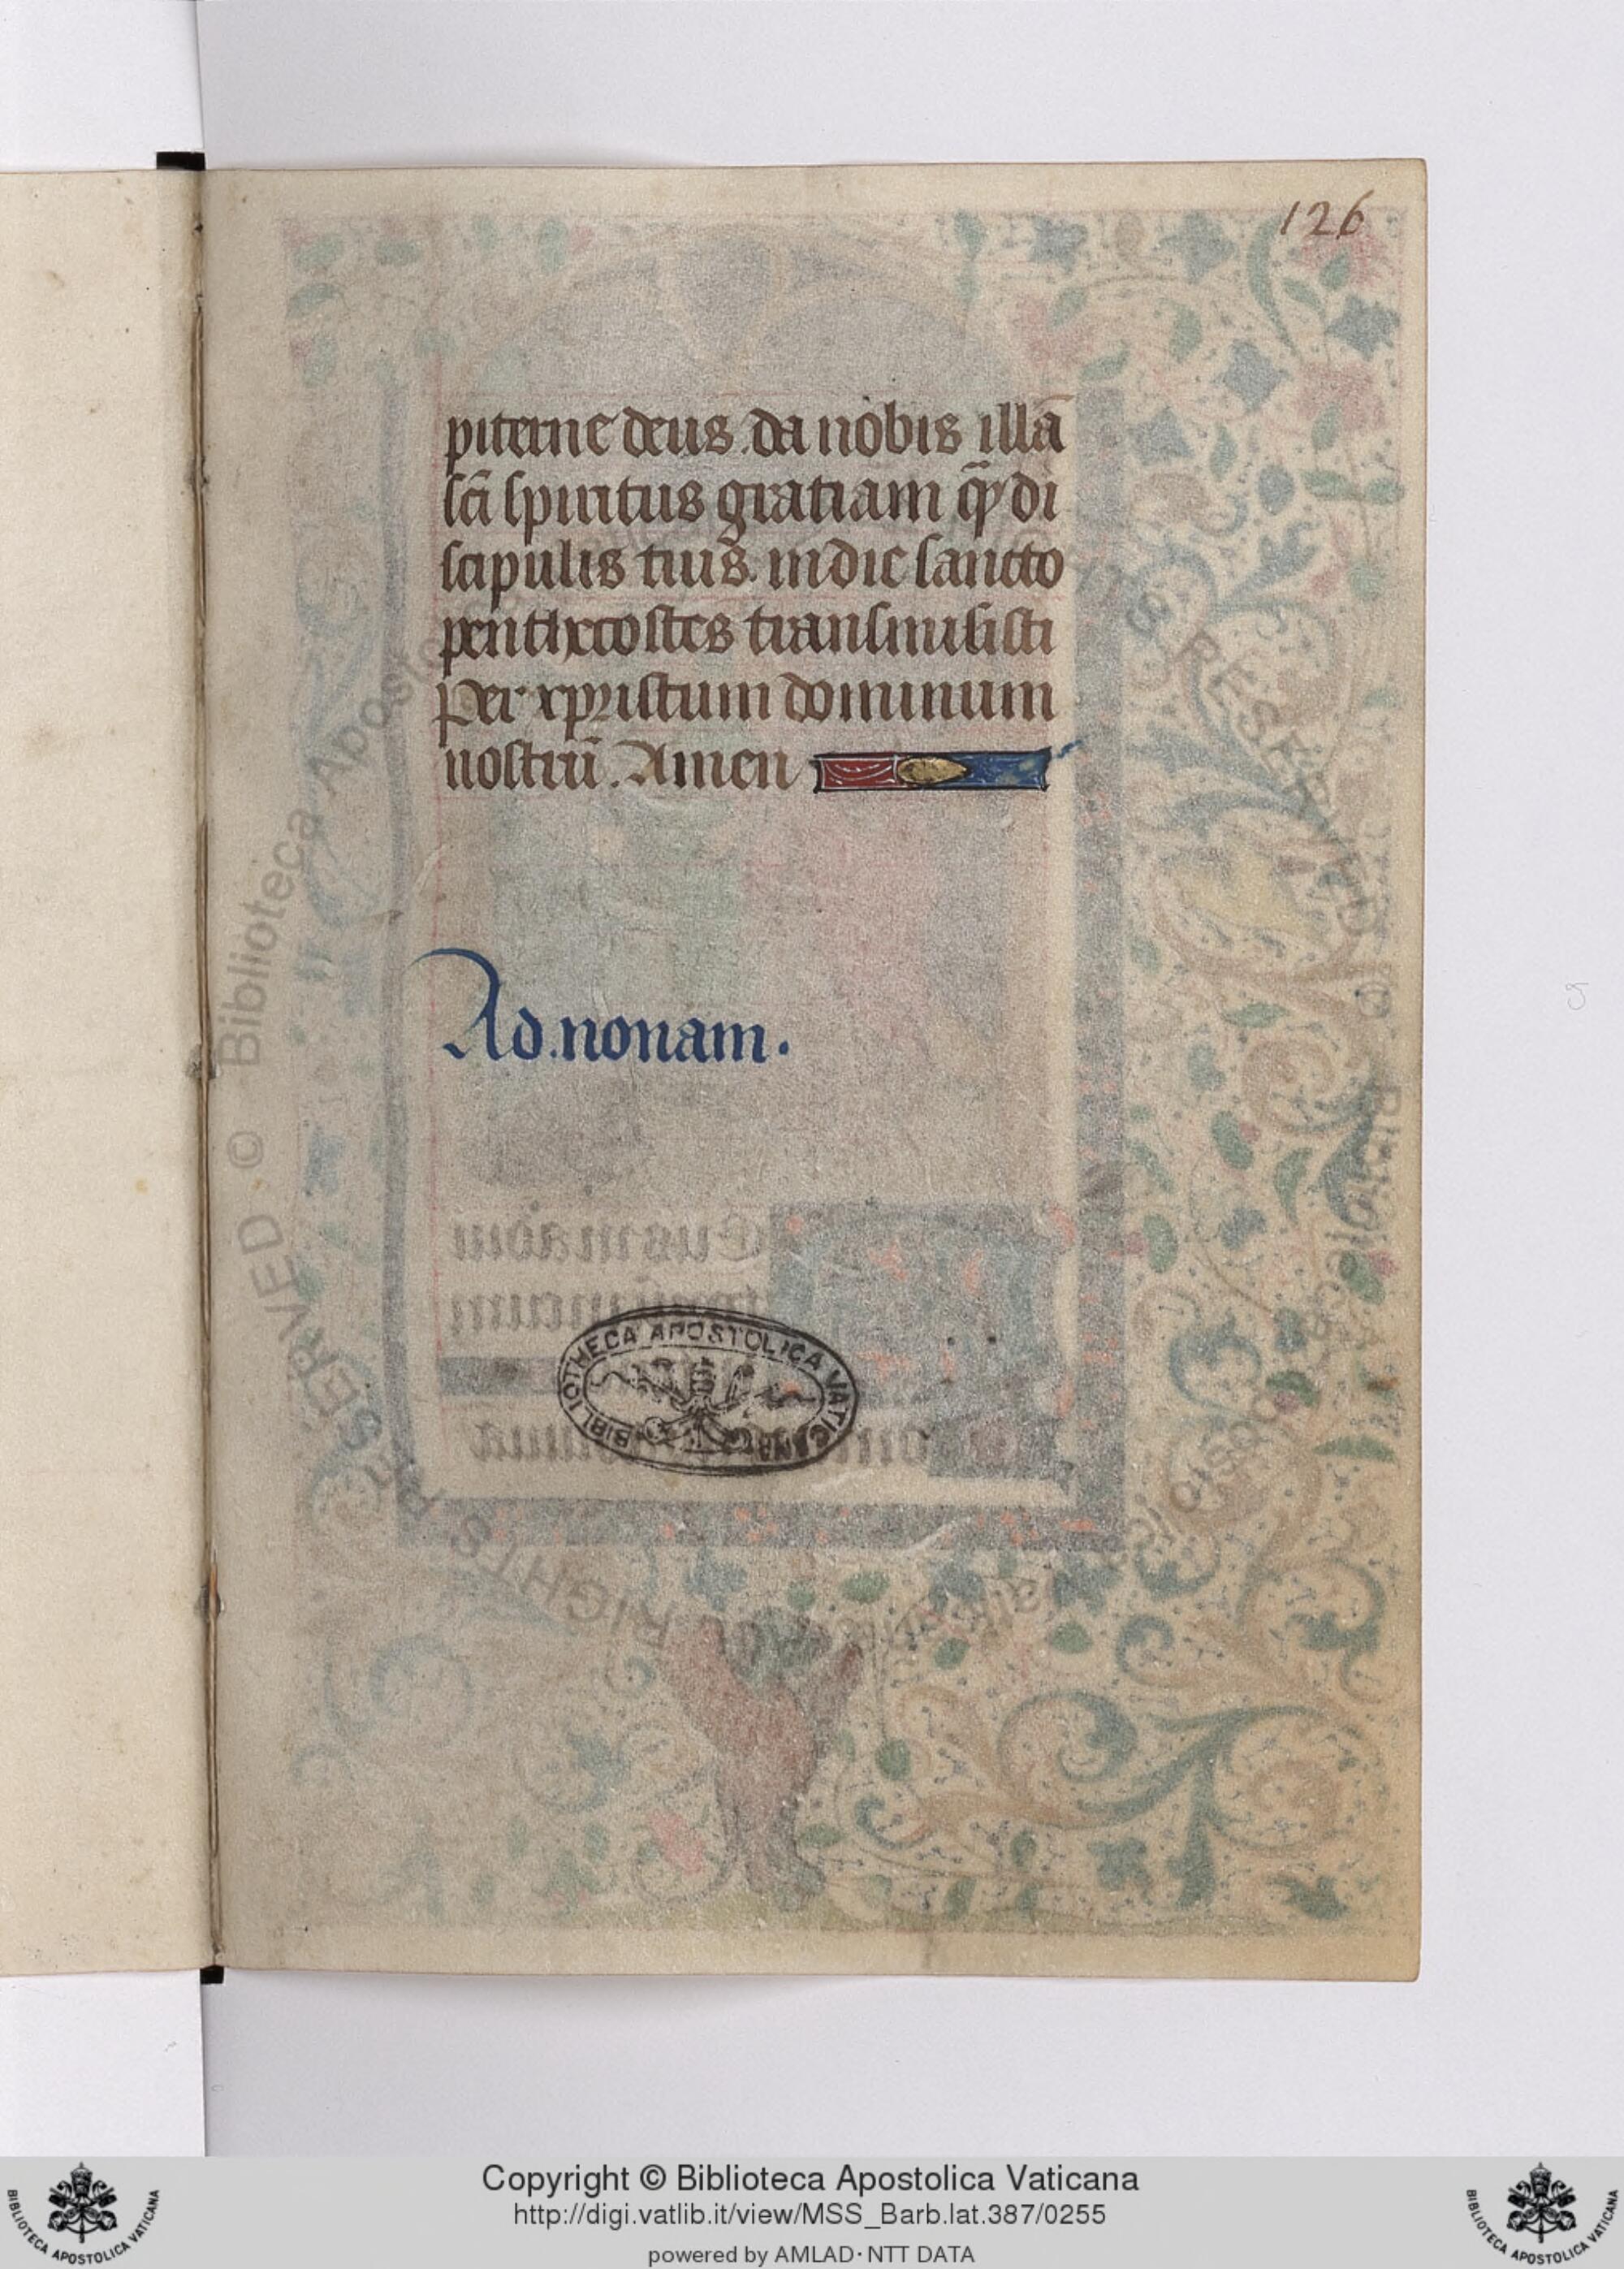 126
piterne deus .da nobis illā
scī spiritus gratiam q̄ȝ di
scipulis tuis. in die sancto
penthecostes transmisisti
Per xpristum dominum
nostrū . Amen
Ad.nonam.
BIBLIOTHECA APOSTOLICA VATICANA
Copyright © Biblioteca Apostolica Vaticana
http://digi.vatlib.it/view/MSS_Barb.lat.387/0255
powered by AMLAD·NTT DATA
BIBLIOTECA APOSTOLICA VATICANA
BIBLIOTECA APOSTOLICA VATICANA